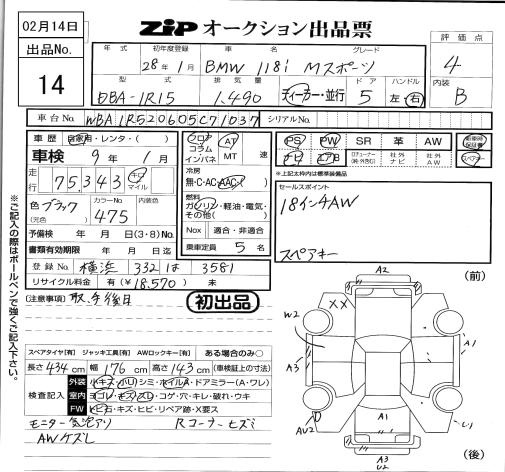 02月14日
ZiP オークション出品票
評価点
4
内装
B
出品No.
14
年式 初年度登録 車名 グレード
28年1月 BMW 118i Mスポーツ
型式 排気量 ドア ハンドル
DBA-1R15 1,490 ディーカー・並行 5 左・右
車台No. WBA1R520605C71037 シリアルNo.
車歴 自家用・レンタ・( )
車検 9年 1月
走行 75,343 キロ マイル
色 ブラック (元色) カラーNo. 475 内装色
予備検 年 月 日(3・8)No.
書類有効期限 年 月 日迄
登録No. 横浜 332 は 3581
リサイクル料金 有(¥18,570) 未
フロア コラム インパネ AT MT 速
冷房
無・C・AC・AAC( )
燃料
ガソリン・軽油・電気・その他( )
Nox 適合・非適合
乗車定員 5 名
PS PW SR 革 AW
ナビ エアB 社外ナビ 社外AW スペアキー
*上記太枠内は標準装備品
セールスポイント
18インチAW
スペアキー
[注意事項] 取、手後日
初出品
スペアタイヤ[有] ジャッキ工具[有] AWロックキー[有] ある場合のみ○
長さ434cm 幅176cm 高さ143cm (車検証上の寸法)
検査記入
外装 小キズ・凹・シミ・ホイルキズ・ドアミラー(A・ワレ)
室内 ヨゴレ・キズ・スレ・コゲ・穴・キレ・破れ・ウキ
FW ヒ石・キズ・ヒビ・リペア跡・X要ス
モニター気泡アリ Rコーナーヒズミ
AWケズレ
※ご記入の際はボールペンで強くご記入下さい。
(前)
A2
XX
W2
A1
A3
A3
AW2
A1
U1
A3
U2
(後)